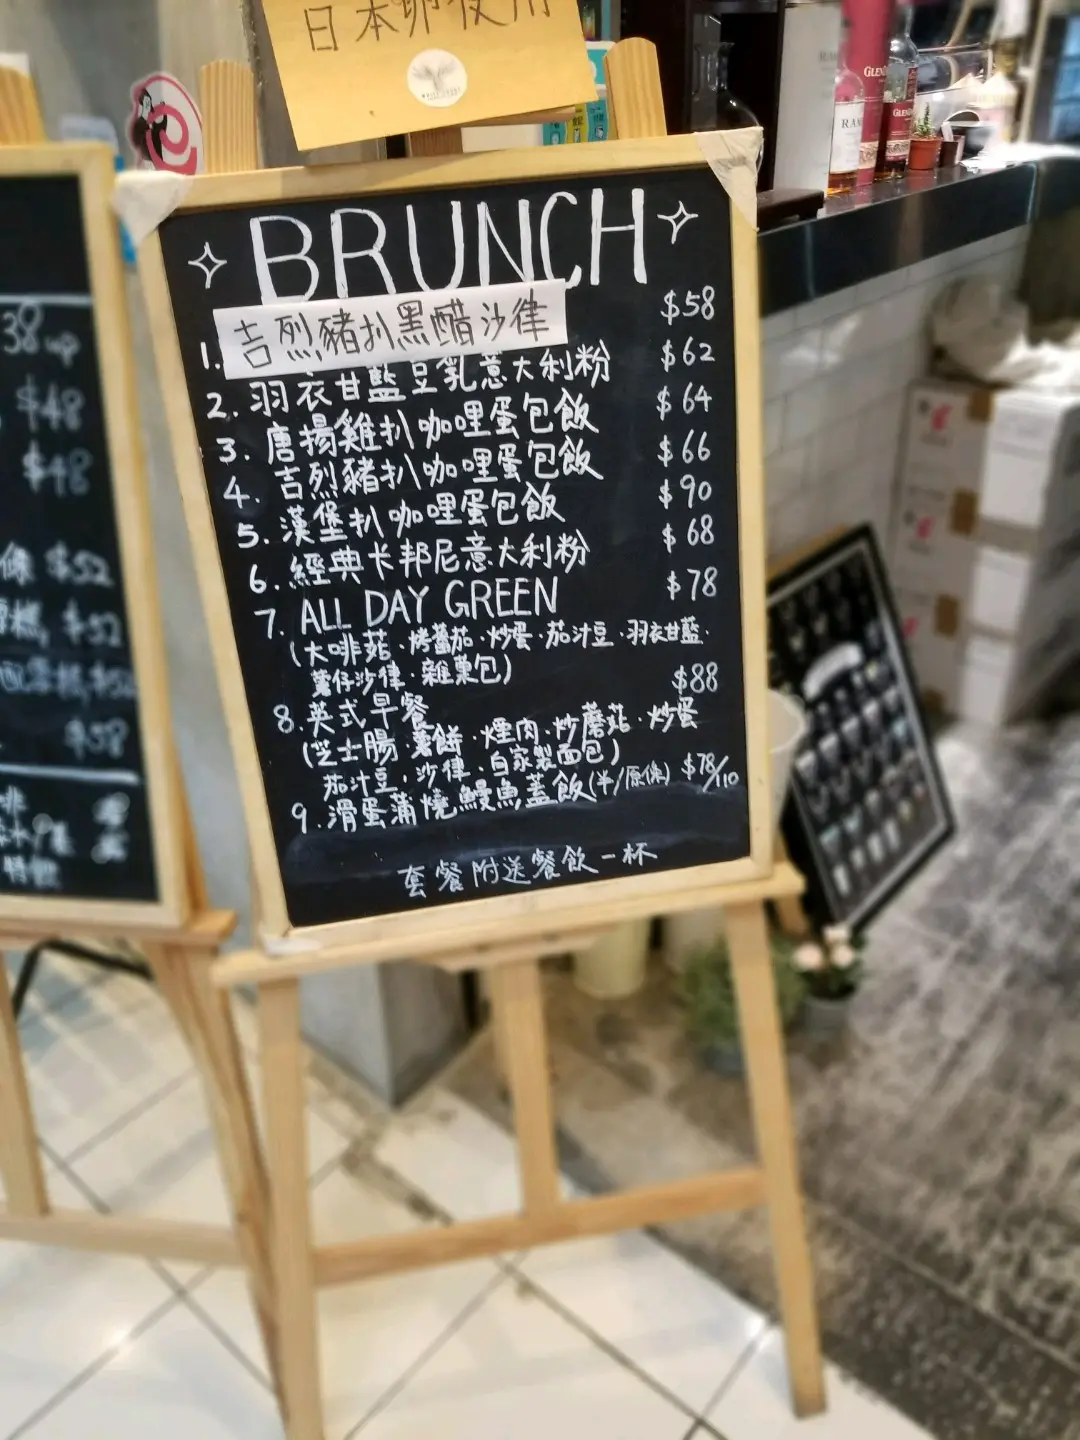 日本卵使用
BRUNCH
1. 吉烈豬扒黑醋沙律 $58
2. 羽衣甘藍豆乳意大利粉 $62
3. 唐揚雞扒咖哩蛋包飯 $64
4. 吉烈豬扒咖哩蛋包飯 $66
5. 漢堡扒咖哩蛋包飯 $90
6. 經典卡邦尼意大利粉 $68
7. ALL DAY GREEN $78
(大啡菇·烤蕃茄·炒蛋·茄汁豆·羽衣甘藍·
薯仔沙律·雜菓包)
8. 英式早餐 $88
(芝士腸·薯餅·煙肉·炒蘑菇·炒蛋
茄汁豆·沙律·自家製面包)
9. 滑蛋蒲燒鰻魚蓋飯(半/原條) $78/110
套餐附送餐飲一杯
38 up
$48
$48
條 $52
$58
特飲